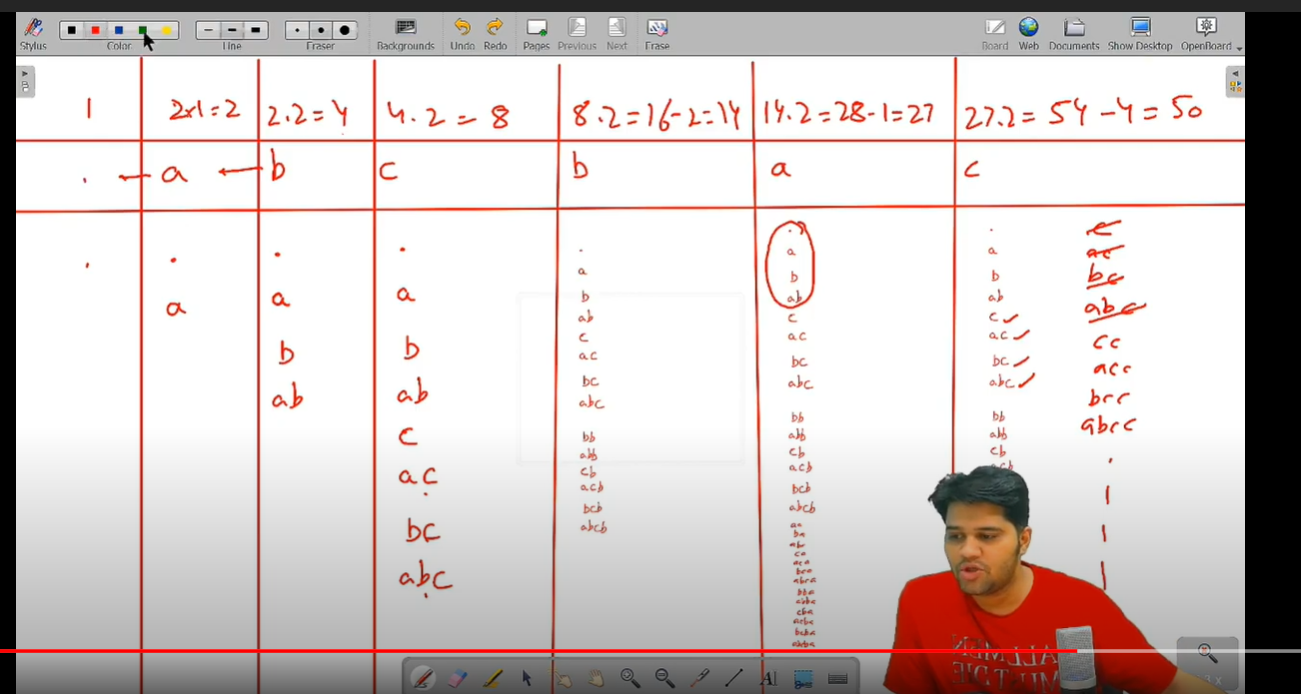 Stylus
Color
Line
Eraser
Backgrounds
Undo
Redo
Pages
Previous
Next
Erase
Board
Web
Documents
Show Desktop
OpenBoard
1
2x1=2
2.2=4
4.2=8
8.2=16-2=14
14.2=28-1=27
27.2=54-4=50
. a b c b a c
.
.
a
.
a
b
ab
.
a
b
ab
c
ac
bc
abc
.
a
b
ab
c
ac
bc
abc
bb
abb
cb
acb
bcb
abcb
.
a
b
ab
c
ac
bc
abc
bb
abb
cb
acb
bcb
abcb
aa
ba
.
a
b
ab
c ✓
ac ✓
bc ✓
abc ✓
bb
abb
cb
c
ac
bc
abc
cc
acc
bcc
abcc